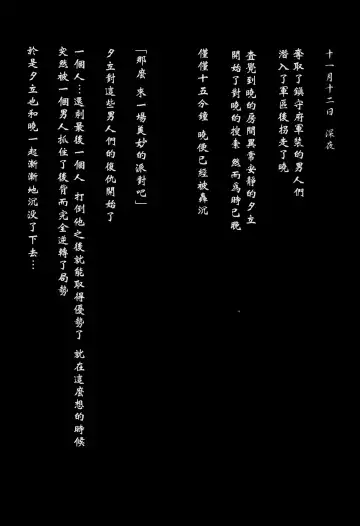 十一月十二日 深夜
奪取了鎮守府軍裝的男人們
潛入了軍區後拐走了曉
查覺到曉的房間異常安靜的夕立
開始了對曉的搜索 然而為時已晚
僅僅十五分鐘 曉便已經被轟沉
「那麼 來一場美妙的派對吧」
夕立對這些男人們的復仇開始了
一個人…還剩最後一個人 打倒他之後就能取得優勢了 就在這麼想的時候
突然被一個男人抓住了後背而完全逆轉了局勢
於是夕立也和曉一起漸漸地沉没了下去…